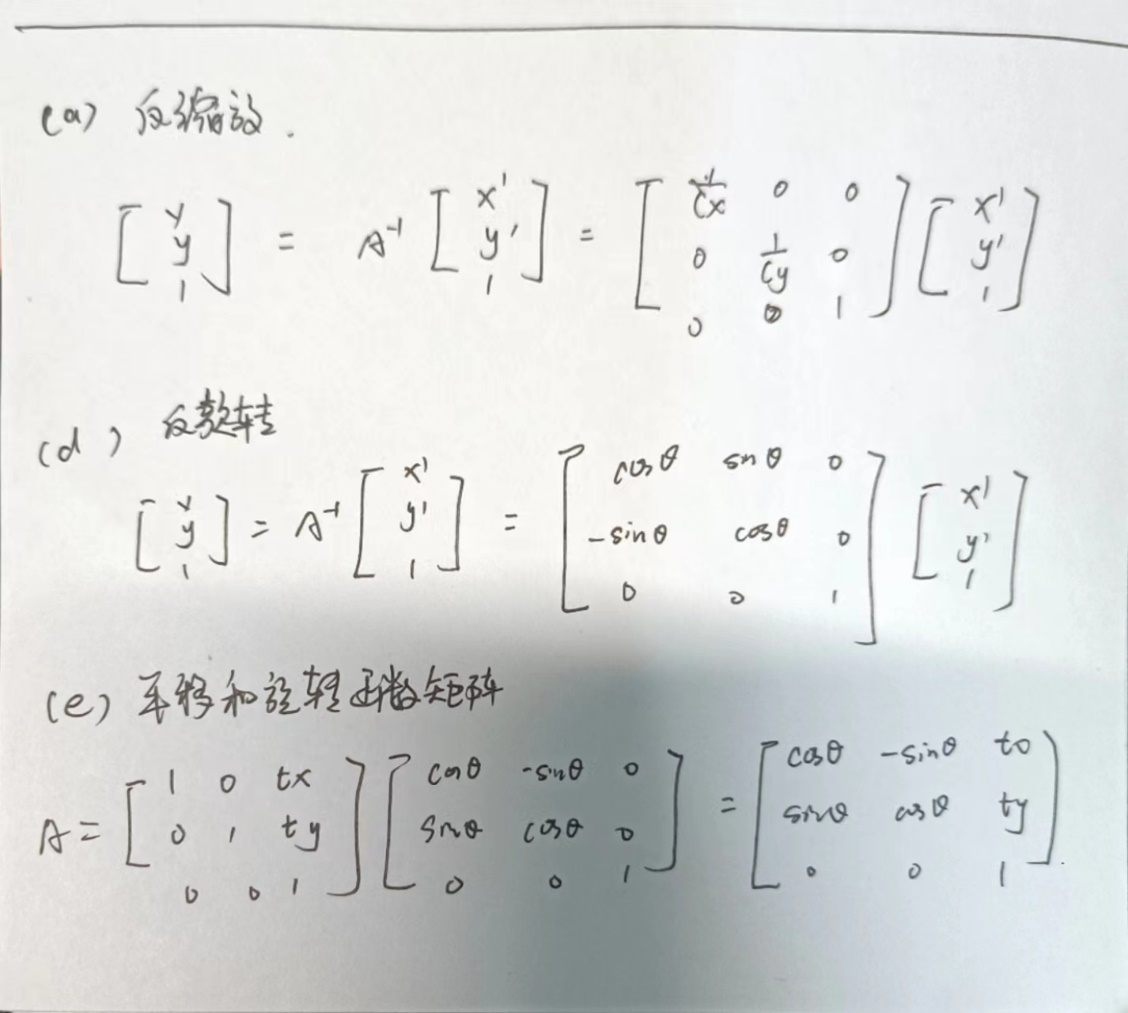 (a) 反缩放.
[x y 1] = A⁻¹ [x' y' 1] = [1/Cx 0 0; 0 1/Cy 0; 0 0 1] [x' y' 1]
(d) 反 转
[x y 1] = A⁻¹ [x' y' 1] = [cosθ sinθ 0; -sinθ cosθ 0; 0 0 1] [x' y' 1]
(e) 平移和旋转函数矩阵
A = [1 0 tx; 0 1 ty; 0 0 1] [cosθ -sinθ 0; sinθ cosθ 0; 0 0 1] = [cosθ -sinθ to; sinθ cosθ ty; 0 0 1].